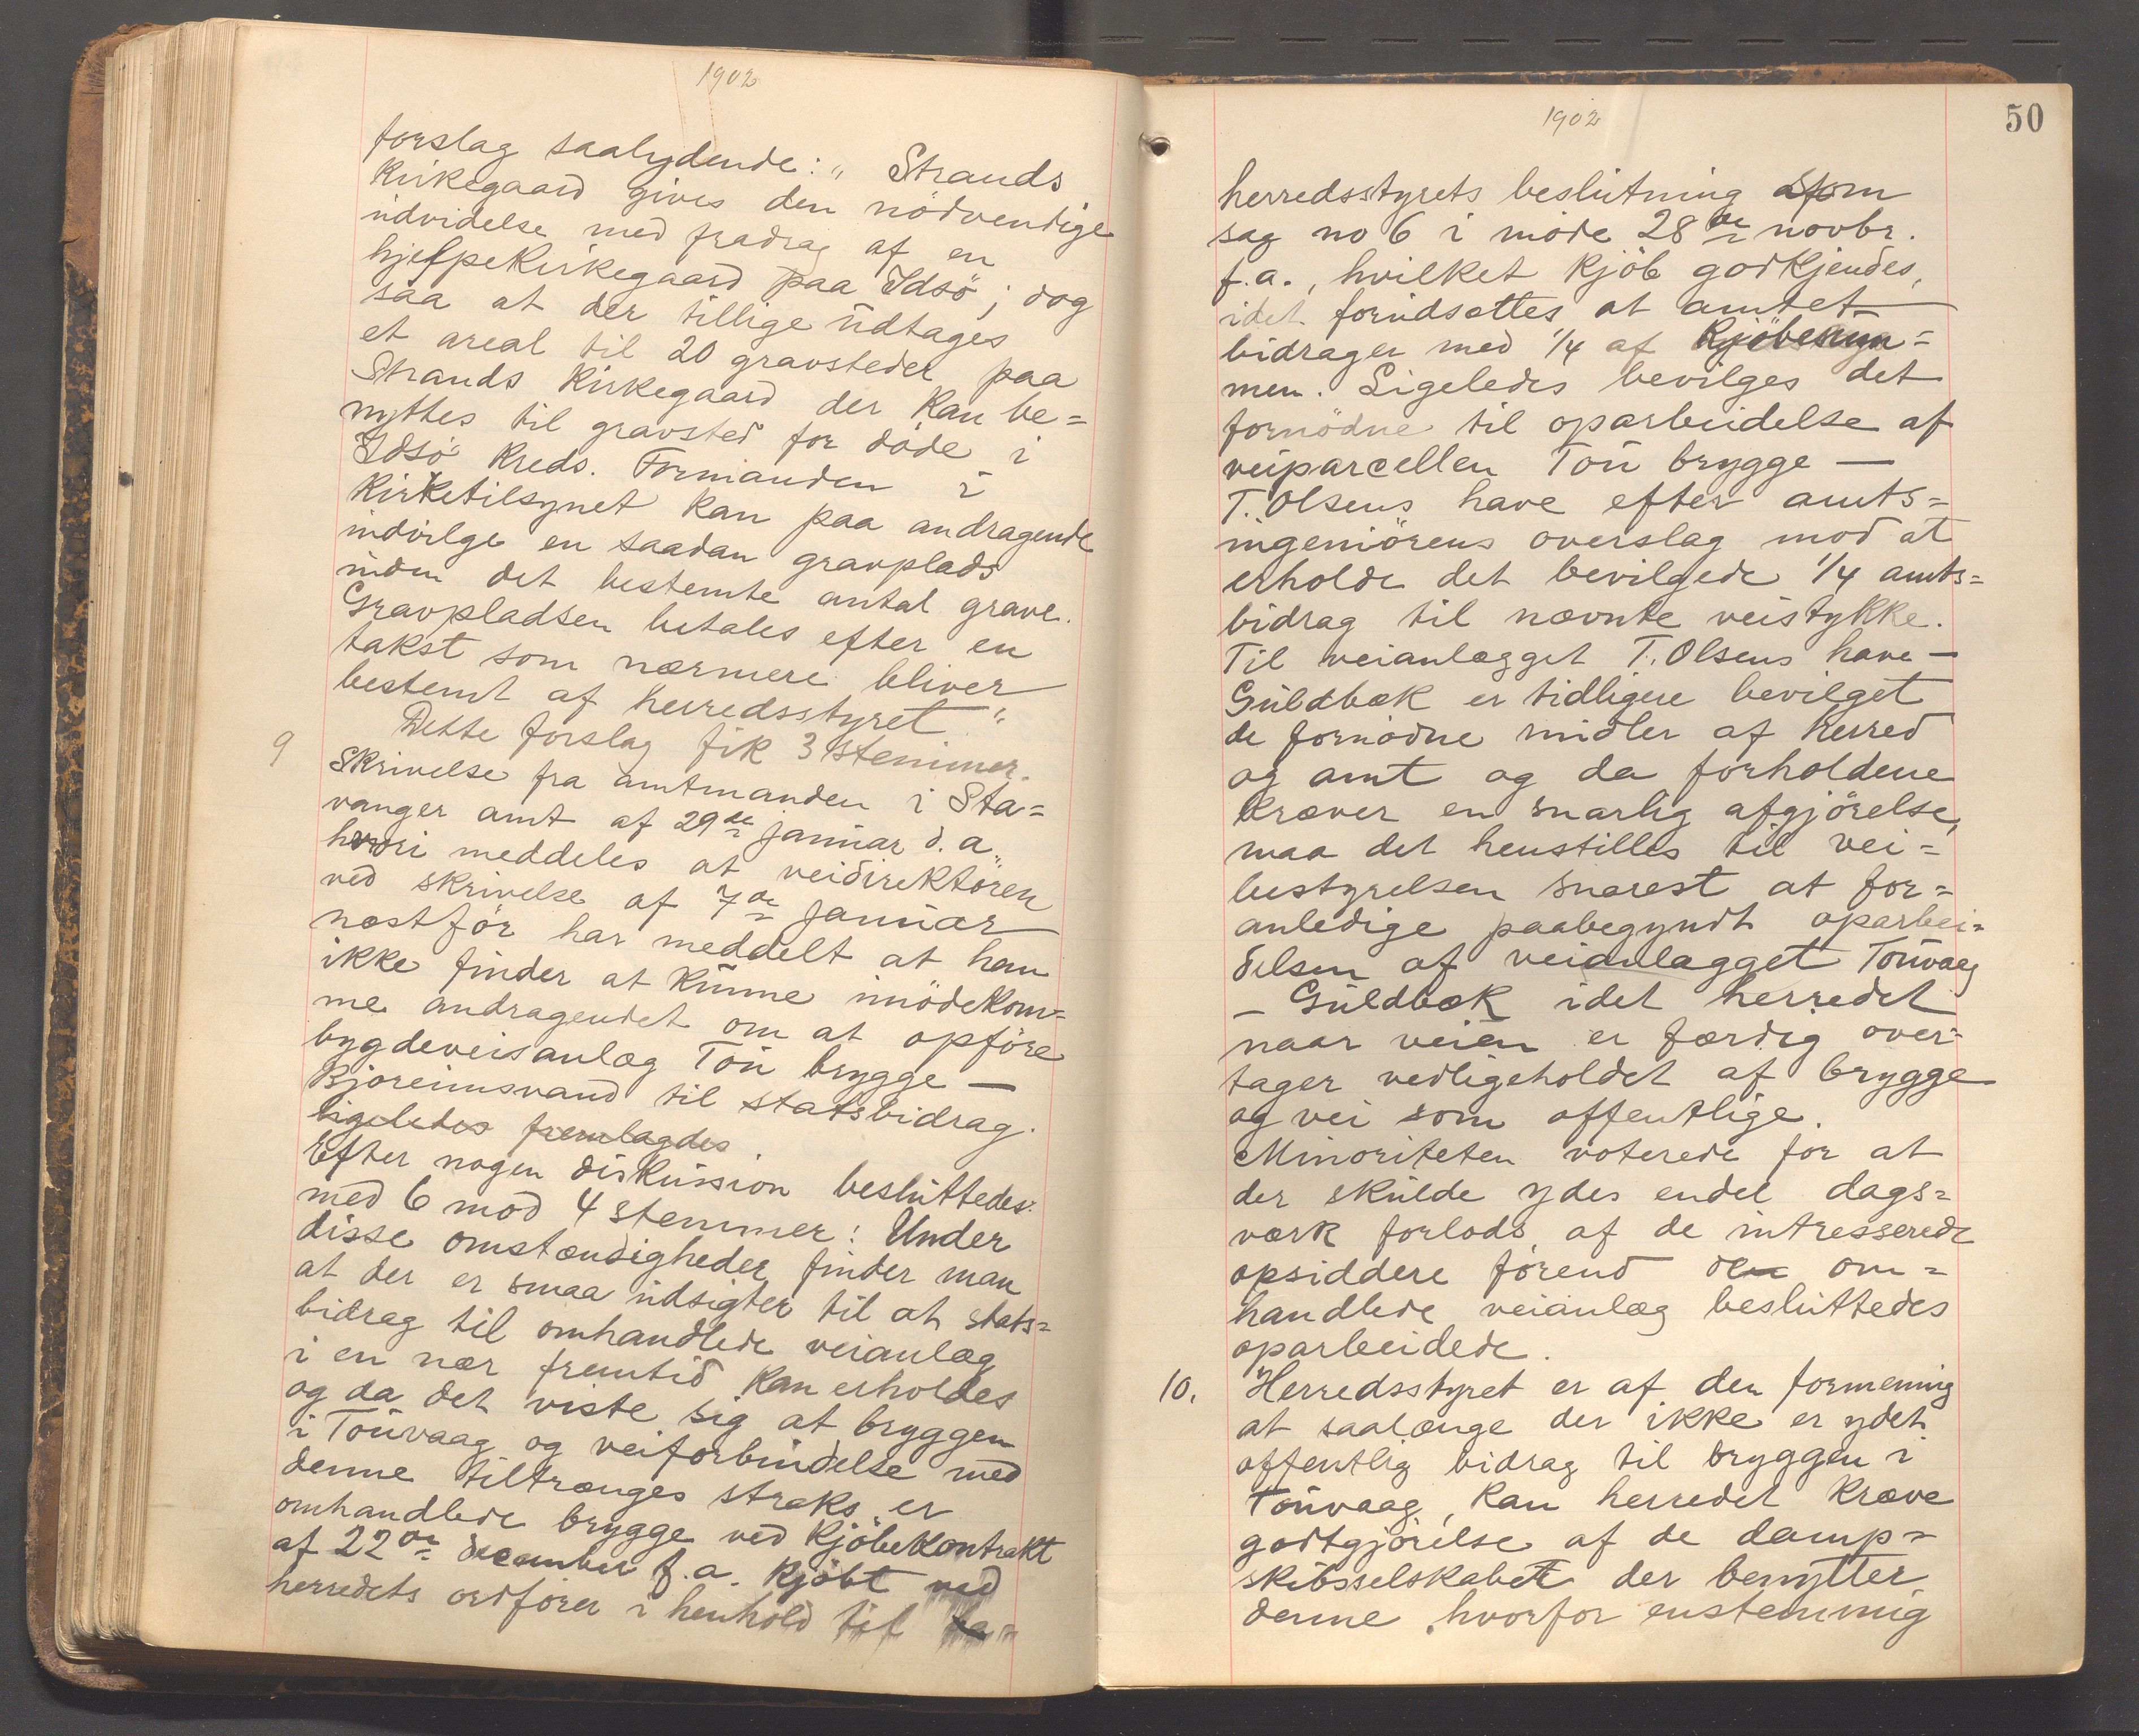 1902
forslag saalydende: „ Strands
Kirkegaard gives den nödvendige
udvidelse med fradrag af en
hjelpekirkegaard paa Idsö; dog
saa at der tillige udtages
et areal til 20 gravsteder paa
Strands Kirkegaard der kan be=
nyttes til gravsted for döde i
Idsö Kreds. Formanden i
Kirketilsynet kan paa andragende
indvilge en saadan gravplads
inden det bestemte antal grave.
Gravpladsen betales efter en
takst som nærmere bliver
bestemt af herredsstyret“
Dette forslag fik 3 stemmer.
9 Skrivelse fra amtmanden i Sta=
vanger amt af 29de januar d. a.,
hvori meddeles at veidirektören
ved skrivelse af 7de januar
næstför har meddelt at han
ikke finder at kunne imödekom=
me andragendet om at opföre
bygdeveisanlæg Tou brygge —
Bjoreimsvand til statsbidrag.
Ligeledes fremlagdes
Efter nogen diskussion besluttedes
med 6 mod 4 stemmer: Under
disse omstændigheder finder man
at der er smaa udsigter til at stats=
bidrag til omhandlede veianlæg
i en nær fremtid kan erholdes
og da det viste sig at bryggen
i Touvaag og veiforbindelse med
denne tiltrænges straks er
omhandlede brygge ved kjöbekontrakt
af 22de december f. a. kjöbt ved
herredets ordförer i henhold til
1902
50
herredsstyrets beslutning som
sag no 6 i möde 28de novbr.
f. a., hvilket kjöb godkjendes,
idet forudsættes at amtet
bidrager med 1/4 af kjöbesum=
men. Ligeledes bevilges det
fornödne til oparbeidelse af
veiparcellen Tou brygge —
T. Olsens have efter amts=
ingeniörens overslag mod at
erholde det bevilgede 1/4 amts=
bidrag til nævnte veistykke.
Til veianlægget T. Olsens have —
Guldbæk er tidligere bevilget
de fornödne midler af herred
og amt og da forholdene
kræver en snarlig afgjörelse,
maa det henstilles til vei=
bestyrelsen snarest at for=
anledige paabegyndt oparbei=
delsen af veianlægget Touvaag
— Guldbæk idet herredet
naar veien er færdig over=
tager vedligeholdet af brygge
og vei som offentlige.
Minoriteten voterede for at
der skulde ydes endel dags=
værk forlods af de intresserede
opsiddere förend den om=
handlede veianlæg besluttedes
oparbeidede.
10. Herredsstyret er af den formening
at saalænge der ikke er ydet
offentlig bidrag til bryggen i
Touvaag, kan herredet kræve
godtgjörelse af de damp=
skibsselskabet der benytter
denne, hvorfor enstemmig